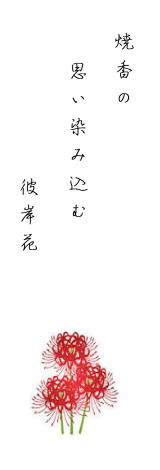 焼香の
思い染み込む
彼岸花